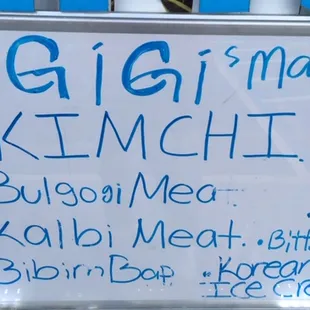 GiGi's Ma
KIMCHI
Bulgogi Meat
Kalbi Meat. • Bitt
BibimBap • Korean
Ice Cre